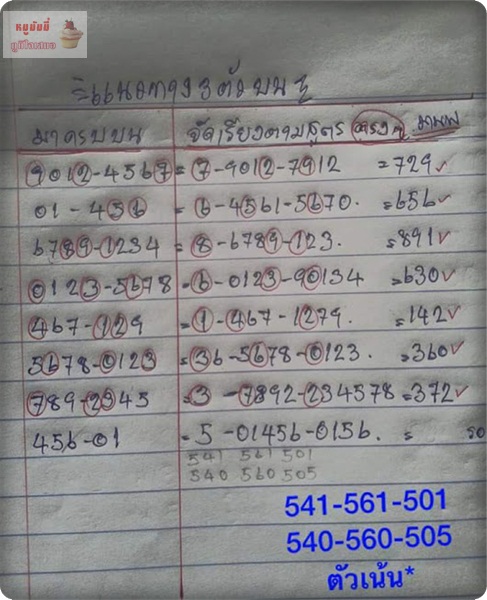 หมูมันนี่
ภูมิใจเสนอ
แนวทาง 3 ตัวบน
มาครบบน จัดเรียงตามสูตร ตรงๆ
9012-4567 = 7-9012-7912 =729✓
01-456 = 6-4561-5670. =656✓
6789-1234 = 8-6789-123. =891✓
0123-5678 =6-0123-90134 =630✓
467-129 =1-467-1279. =142✓
5678-0123 =36-5678-0123. =360✓
789-2345 =3-7892-234578 =372✓
456-01 =5-01456-0156. = รอ
541 561 501
540 560 505
541-561-501
540-560-505
ตัวเน้น*